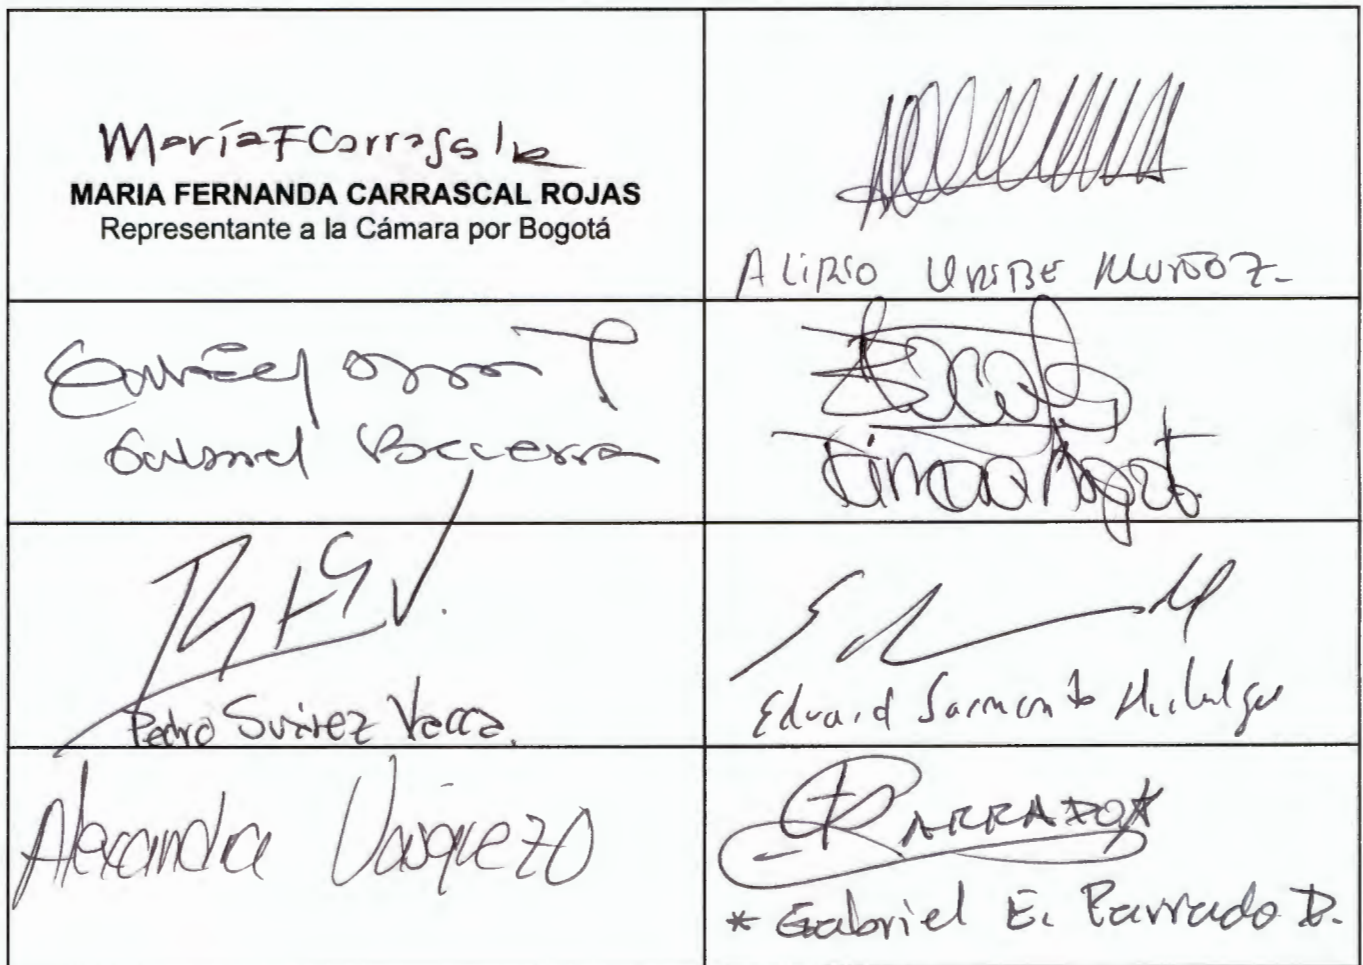 María F Carrascal R
MARIA FERNANDA CARRASCAL ROJAS
Representante a la Cámara por Bogotá
ALIRIO URIBE MUÑOZ
Gabriel Becerra
Pedro Suárez Vacca.
Eduard Sarmiento Hidalgo
Alexandra Vásquez O
PARRADO*
* Gabriel E. Parrado D.